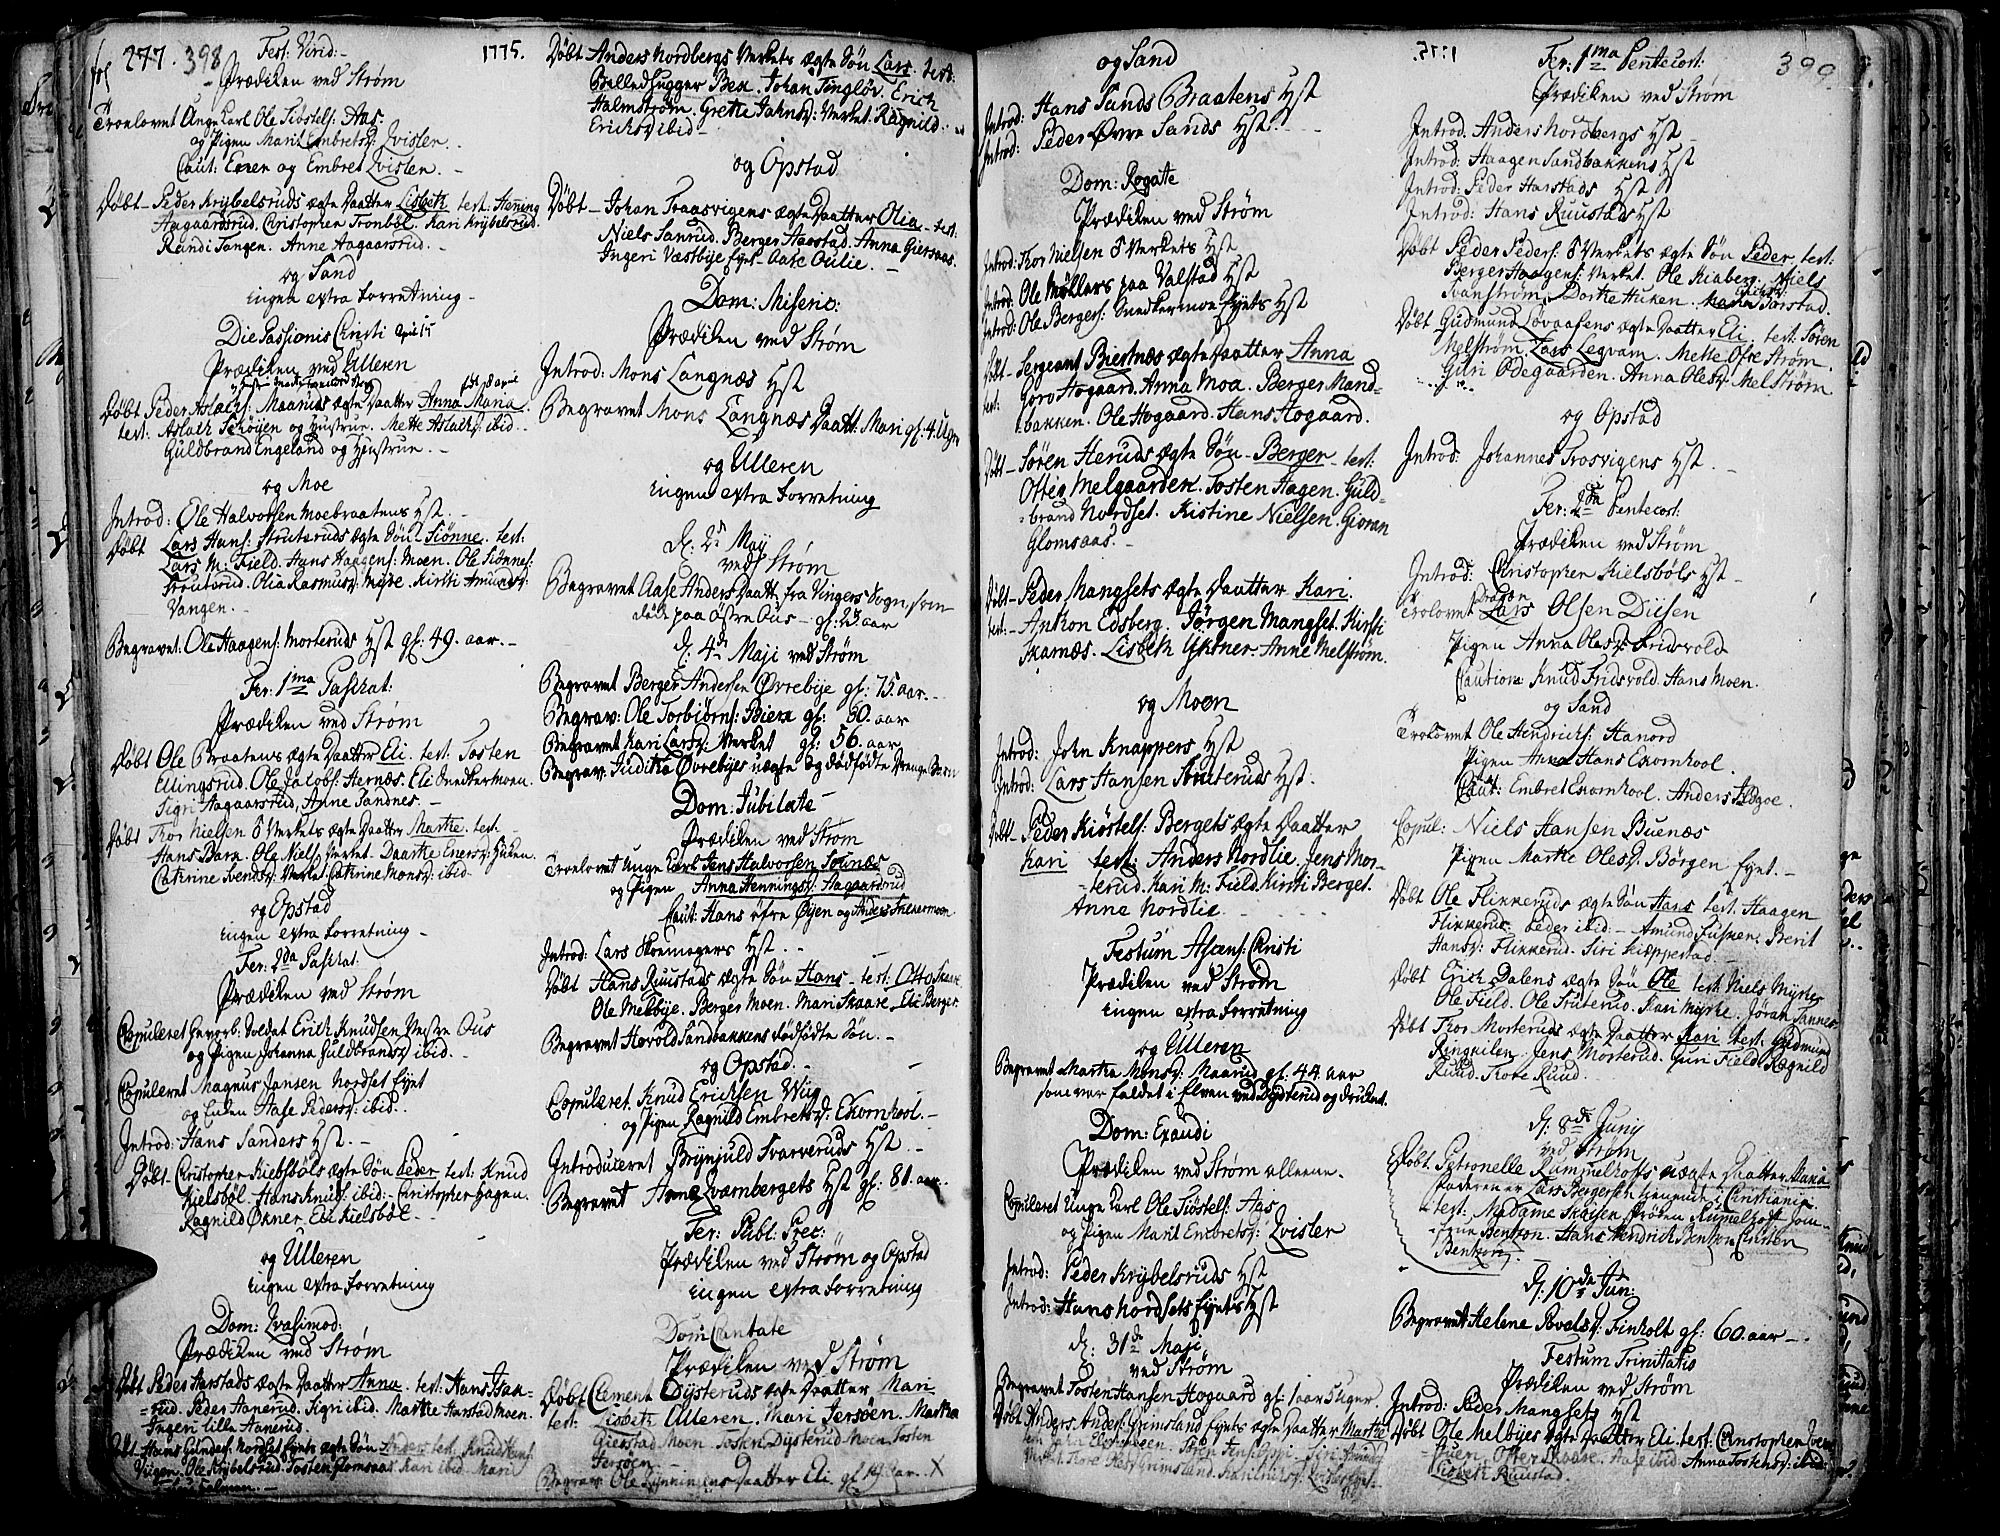 277. 398
Fest: Virid:
1775.
Prædiken ved Strøm
Troelovet Unge Karl Ole Siøstels: Aas.
og Pigen Marit Embretsd: Qvislen.
Caut: Even og Embret Qvislen.
Døbt Peder Krybelsruds ægte Daatter Lisbeth test: Hening
Aagaardsrud. Christopher Tronbøl. Kari Krybelsrud.
Randi Tangen. Anne Aagaarsrud.
og Sand
ingen extra Forretning
Die Passionis Christi
Prædiken ved Ulleren
Døbt Peder Aslachs: Maaruds ægte Daatter Anna Maria
test: Aslach Schøyen og Hustrue. Mette Aslachsd: ibid
Guldbrand Engeland og Hustrue.
og Moe
Introd: Ole Halvorsen Moebraatens Hst
Døbt Lars Hans: Struteruds ægte Søn Siønne. test:
Lars M: Field. Hans Haagens: Moen. Ole Siønnes:
Struterud. Olia Rasmusd: Myre. Kirsti Amundsd:
Vangen.
Begravet Ole Haagens: Morteruds Hst gl: 49. aar.
Fer: 1ma Paschat:
Prædiken ved Strøm
Døbt Ole Braatens ægte Daatter Eli. test: Tosten
Ellingsrud. Ole Jacobs: Hernæs. Eli Snedkermoen.
Sigri Aagaarsrud, Anne Sandnes.
Døbt Thor Nielsen S Verkets ægte Daatter Marthe. test.
Hans Bara. Ole Niels: Verket. Daarthe Enersd: Huken.
Catrine Svends: Verket. Catrine Monsd: ibid
og Opstad
ingen extra Forretning
Fer: 2da Paschat:
Prædiken ved Strøm
Copuleret Gevorb: Soldat Erich Knudsen Vestre Ous
og Pigen Johanna Guldbrandsd ibid.
Copuleret Magnus Jansen Nordset Eynt
og Enken Aase Pedersd: ibid.
Introd: Hans Sanders Hst.
Døbt Christopher Kielsbøls ægte Søn Peder test: Knud
Kielsbøl. Hans Knuds: ibid: Christopher Hagen.
Ragnild Økner. Eli Kielsbøl
og Ulleren
ingen extra Forretning
Dom: Qvasimod:
Prædiken ved Strøm
Døbt Peder Harstads ægte Daatter Anna. test: Hans Isak=
=rud. Peder Hanerud. Sigri ibid. Marthe Harstad Moen.
Ingeri Lille Hanerud.
Døbt Hans Gunders: Nordset Eynts ægte Søn Anders test. Knud Hans:
Viigen. Ole Krybelsrud. Tosten Glomsaas. Kari ibid. Mari
Døbt Anders Nordbergs Verkets ægte Søn Lars. test:
Belledhugger Bex. Johan Tingløv. Erich
Halmstrøm. Grethe Jahnsd: Verket. Ragnild
Ericksd ibid
og Opstad
Døbt Johan Traasvigens ægte Daatter Olia. test:
Niels Sanrud. Berger Aarstad. Anna Giersaas.
Ingeri Væstbye Eynt. Aase Oulie.
Dom: Miseric:
Prædiken ved Strøm
Introd: Mons Langnæs Hst
Begravet Mons Langnæs Daatt: Mari gl: 4. Uger
og Ulleren
ingen extra Forretning
d: 2d Maij
ved Strøm
Begravet Aase Anders Daatt. fra Vingers Sogn, som
døde paa Østre Ous gl: 23 aar
d: 4d Maji ved Strøm
Begravet Berger Andersen Øvrebye gl: 75. aar.
Begrav: Ole Torbiørns: Biera gl: 60. aar
Begravet Kari Larsd: Verket gl: 56. aar
Begrav: Judithe Øvrebyes uægte og dødfødte Drenge Barn
Dom: Jubilate
Prædiken ved Strøm
Troelovet Unge Carl Jens Halvorsen Sætnæs
og Pigen Anna Henningsd: Aagaardsrud
Caut: Hans øfre Øyen og Anders Snekermoen
Introd: Lars Skoemagers Hst.
Døbt Hans Ruustads ægte Søn Hans. test: Otto Skaare
Ole Melbye. Berger Moen. Mari Skaare, Eli Berger
Begravet Harold Sandbakkens dødfødte Søn.
og Opstad.
Copuleret Knud Ericksen Wiig
og Pigen Ragnild Embretsd: Skornhool.
Introduceret Brynjuld Svarveruds Hst
Begravet Anne Qvernbergets Hst gl: 81. aar.
Fer: Publ: Prec:
Prædiken ved Strøm og Opstad
ingen extra Forretning
Dom: Cantate
Prædiken ved Strøm
Døbt Clement Dysteruds ægte Daatter Mari
test: Lisbeth Ulleren. Mari Jersøen. Marthe
Gierstad Moen. Tosten Dysterud Moen. Tosten
Jersøen.
Begrav: Ole Daatter Eli. gl: aar. X
og Sand
Introd: Hans Sands Braatens Hst
Introd: Peder Øvre Sands Hst.
Dom: Rogate
Prædiken ved Strøm
Introd: Thor Nielsen S Verkets Hst
Introd: Ole Møllers paa Valstad Hst
Introd: Ole Bergers: Snedkermoe Eynts Hst
Døbt Sergeant Biertnæs ægte Daatter Anna
test: Goro Hogaard. Anna Moe. Berger Mand=
=bakken. Ole Hogaard. Hans Hogaard.
Døbt Søren Heruds ægte Søn Berger. test:
Otter Melgaarden. Tosten Hagen. Guld=
=brand Nordset. Kistine Nielsen. Gioran
Glomsaas.
Døbt Peder Mangsets ægte Daatter Kari.
test: Anthon Edsberg. Jørgen Mangset. Kirsti
Skarnæs. Lisbeth Økner. Anne Melstrøm.
og Moen
Introd: John Knappers Hst
Introd: Lars Hansen Struteruds Hst.
Døbt Peder Kiøstels: Bergets ægte Daatter
Kari test: Anders Nordlie. Jens Mor=
=terud. Kari M: Field. Kirsti Berget.
Anne Nordlie
Festum Ascens: Christi
Prædiken ved Strøm
ingen extra Forretning
og Ulleren
Begravet Marthe Monsd: Maarud gl: 44 aar
som var faldet i Elven ved Dysterud og druknet.
Dom: Exaudi
Prædiken ved Strøm allene.
Copuleret Unge Carl Ole Siøstels: Aas
og Pigen Marit Embretsd: Qvislen
Introd: Peder Krybelsruds Hst
Introd: Hans Nordsets Eynts Hst
d: 31d Maji
ved Strøm
Begravet Tosten Hansen Hogaard gl: 1 aar 5 Uger.
Døbt Anders Anders: Grimsland Eynts ægte Daatter Marthe
1775.
399
Fer: 1ma Pentecost:
Prædiken ved Strøm
Introd: Anders Nordbergs Hst
Introd: Haagen Sandbakkens Hst
Introd: Peder Harstads Hst
Introd: Hans Ruustads Hst
Døbt Peder Peders: S Verkets ægte Søn Peder. test:
Berger Haagens: Verket. Ole Kiaberg. Niels
Svanstrøm. Dorthe Huken. Maria Harstad.
Døbt Gudmund Løvaasens ægte Daatter Eli. test: Søren
Melstrøm. Lars Legvam. Mette Øfre Strøm.
Guri Ødegaarden. Anna Olesd: Melstrøm
og Opstad
Introd: Johannes Trosvigens Hst.
Fer: 2da Pentecost:
Prædiken ved Strøm
Introd: Christopher Kielsbøls Hst
Dragon
Trolovet Lars Olsen Diisen
Pigen Anna Olesd: Fridsvold
Caution: Knud Fridsvold. Hans Moen.
og Sand
Trolovet Ole Hendrichs: Hanord
Pigen Anna Hans Skornhool.
Caut: Embret Skornhool. Anders Habgoe.
Copul: Niels Hansen Buenæs
Pigen Marthe Olesd. Børgen Eynt.
Døbt Ole Flikkeruds ægte Søn Hans. test: Haagen
Flikkerud. Peder ibid: Amund Fusken. Berit
Hansd: Flikkerud. Siri Kieppestad
Døbt Erich Dalens ægte Søn Ole test: Niels Myhre
Ole Field. Ole Struterud. Kari Myhre. Jøran Sannes
Døbt Thor Morteruds ægte Daatter Kari test: Gudmund
Ringnilen. Jens Morterud. Guri Field. Ragnild
Ruud. Thore Ruud.
d: 8de Junij
ved Strøm
Døbt Petronelle Rummelhoffs uægte Daatter Maria
Faderen er Lars Bergersen tienende i Christiania
test: Madame Skaisen. Frøken Rummelhoff. Jom=
=frue Bentzon. Hans Hendrich Bentzon. Christen
Bentzon.
d: 10de Jun:
Begravet Helene Povelsd: Finholt gl: 60. aar
Festum Trinitatis
Prædiken ved Strøm
Introd: Peder Mangsets Hst
Døbt Ole Melbyes ægte Daatter Eli. test: Christopher
Huen. Otter Skaare. Aase ibid. Anna Tostensd: ibid:
Lisbeth Ruustad.